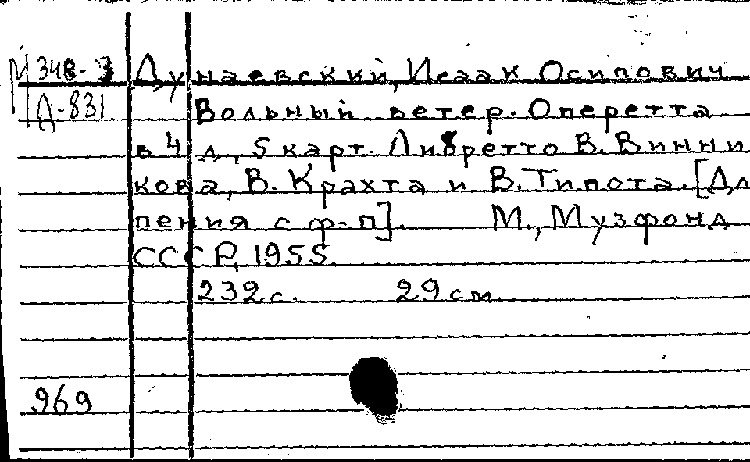 М 348-3 Дунаевский, Исаак Осипович
Д-831 Вольный ветер. Оперетта
в 4 д., 5 карт. Либретто В. Винни
кова, В. Крахта и В. Типота. [Дл
пения с ф-п]. М., Музфонд
СССР, 1955.
232 с. 29 см.
969